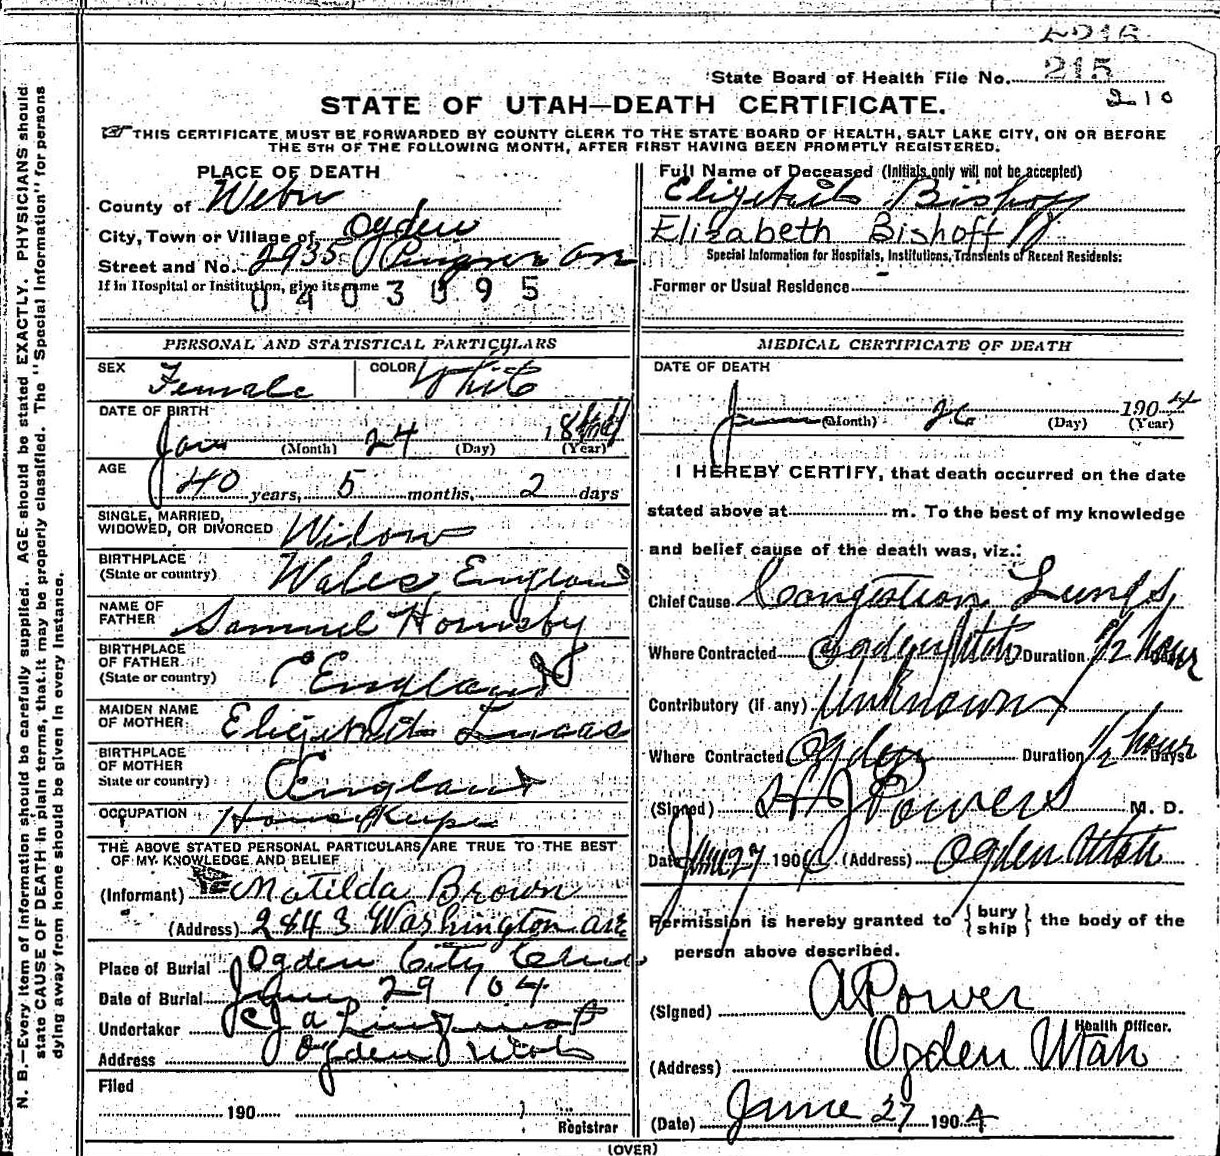 5216
State Board of Health File No. 215
210
STATE OF UTAH—DEATH CERTIFICATE.
THIS CERTIFICATE MUST BE FORWARDED BY COUNTY CLERK TO THE STATE BOARD OF HEALTH, SALT LAKE CITY, ON OR BEFORE
THE 5TH OF THE FOLLOWING MONTH, AFTER FIRST HAVING BEEN PROMPTLY REGISTERED.
N. B.—Every item of information should be carefully supplied. AGE should be stated EXACTLY. PHYSICIANS should
state CAUSE OF DEATH in plain terms, that it may be properly classified. The "Special Information" for persons
dying away from home should be given in every instance.
PLACE OF DEATH
County of Weber
City, Town or Village of Ogden
Street and No. 2935
If in Hospital or Institution, give its name
0403095
Full Name of Deceased (Initials only will not be accepted)
Elizabeth Bishoff
Elizabeth Bishoff
Special Information for Hospitals, Institutions, Transients of Recent Residents:
Former or Usual Residence
PERSONAL AND STATISTICAL PARTICULARS
SEX Female COLOR White
DATE OF BIRTH
Jan (Month) 24 (Day) 1864 (Year)
AGE
40 years, 5 months, 2 days
SINGLE, MARRIED,
WIDOWED, OR DIVORCED Widow
BIRTHPLACE
(State or country) Wales England
NAME OF
FATHER Samuel Hornsby
BIRTHPLACE
OF FATHER
(State or country) England
MAIDEN NAME
OF MOTHER Elizabeth Lucas
BIRTHPLACE
OF MOTHER
State or country) England
OCCUPATION House Keeper
THE ABOVE STATED PERSONAL PARTICULARS ARE TRUE TO THE BEST
OF MY KNOWLEDGE AND BELIEF
(Informant) Matilda Brown
(Address) 2443 Washington ave
Place of Burial Ogden City
Date of Burial June 29 '04
Undertaker
Address Ogden Utah
Filed
190
Registrar
MEDICAL CERTIFICATE OF DEATH
DATE OF DEATH
June (Month) 26 (Day) 1904 (Year)
I HEREBY CERTIFY, that death occurred on the date
stated above at m. To the best of my knowledge
and belief cause of the death was, viz.:
Chief Cause Congestion Lungs
Where Contracted Ogden Utah Duration 1/2 hour Days
Contributory (if any) Unknown
Where Contracted Ogden Duration 1/2 hour Days
(Signed) H J Powers M. D.
Date June 27 1904 (Address) Ogden Utah
Permission is hereby granted to { bury ship } the body of the
person above described.
(Signed) A Power
Health Officer.
(Address) Ogden Utah
(Date) June 27 1904
(OVER)